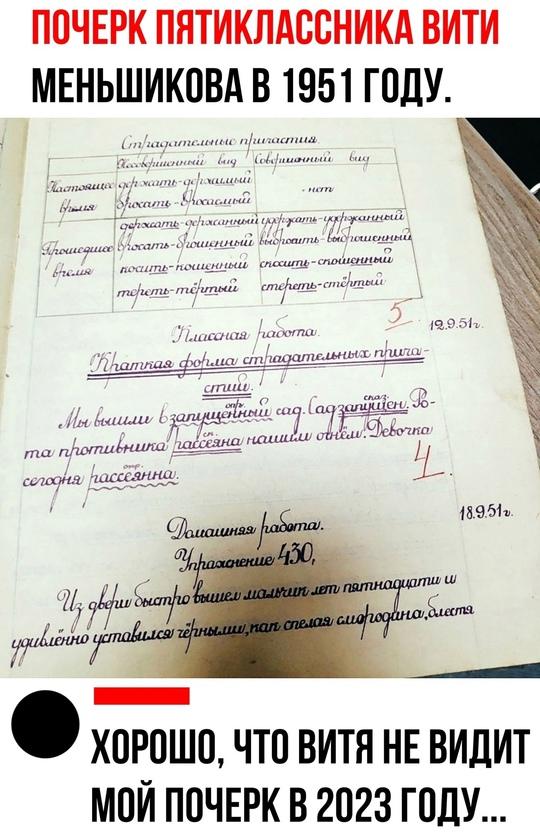 ПОЧЕРК ПЯТИКЛАССНИКА ВИТИ
МЕНЬШИКОВА В 1951 ГОДУ.
Страдательные причастия.
Несовершенный вид Совершенный вид
Настоящее время
держать-держимый
бросать-бросаемый
- нет
Прошедшее время
держать-держанный удержать-удержанный
бросать-брошенный выбросить-выброшенный
носить-ношенный сносить-сношенный
тереть-тёртый стереть-стёртый
5
12.9.51г.
Классная работа.
Краткая форма страдательных прича-
стий.
опр. сказ.
Мы вышли в запущенный сад. Сад запущен. Ро-
ск.
та противника рассеяна нашим огнём. Девочка
опр.
сегодня рассеянна.
4.
18.9.51г.
Домашняя работа.
Упражнение 430,
Из двери быстро вышел мальчик лет пятнадцати и
удивлённо уставился чёрными, как спелая смородина, блестя
ХОРОШО, ЧТО ВИТЯ НЕ ВИДИТ
МОЙ ПОЧЕРК В 2023 ГОДУ...